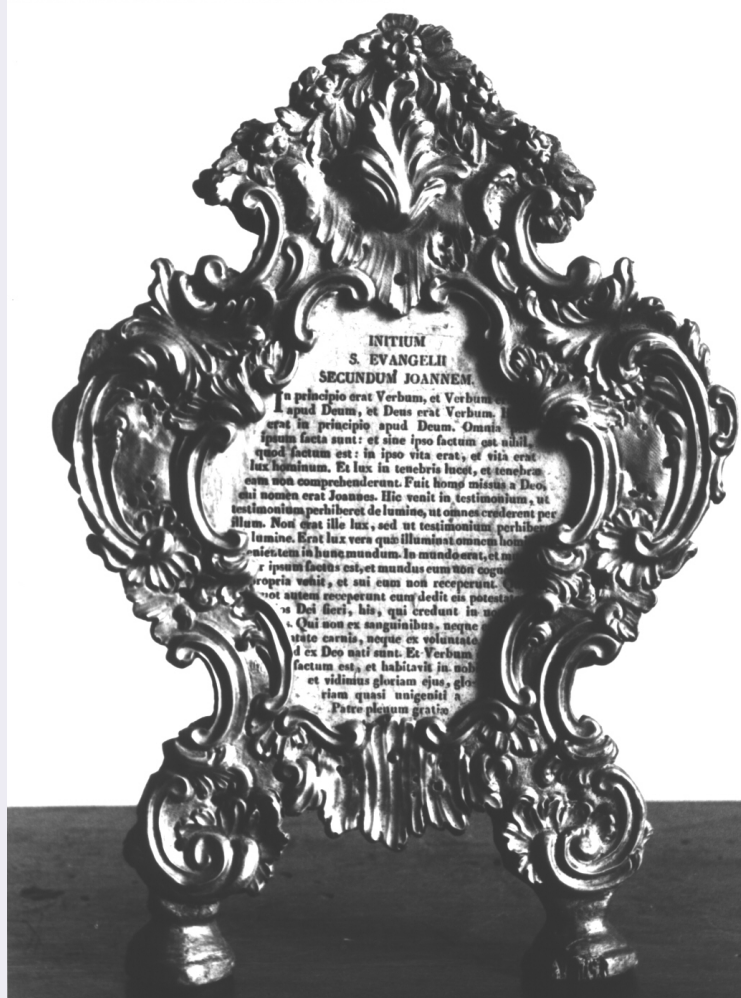 INITIUM
S. EVANGELII
SECUNDUM JOANNEM.
In principio erat Verbum, et Verbum
apud Deum, et Deus erat Verbum.
erat in principio apud Deum. Omnia
ipsum facta sunt: et sine ipso factum est nihil,
quod factum est: in ipso vita erat, et vita erat
lux hominum. Et lux in tenebris lucet, et tenebræ
eam non comprehenderunt. Fuit homo missus a Deo,
cui nomen erat Joannes. Hic venit in testimonium, ut
testimonium perhiberet de lumine, ut omnes crederent per
illum. Non erat ille lux, sed ut testimonium perhiberet
lumine. Erat lux vera quæ illuminat omnem
venientem in hunc mundum. In mundo erat, et
ipsum factus est, et mundus eum non
propria venit, et sui eum non receperunt.
autem receperunt eum dedit eis
Dei fieri, his, qui credunt in
Qui non ex sanguinibus, neque
carnis, neque ex voluntate
ex Deo nati sunt. Et Verbum
factum est, et habitavit in
et vidimus gloriam ejus, glo-
riam quasi unigeniti a
Patre plenum gratiæ